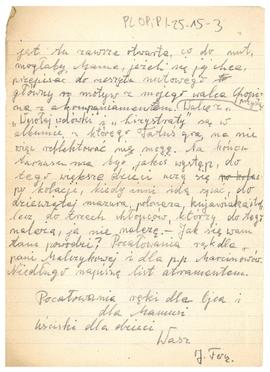 PL OPiP I-25-15-3
jest tu zawsze otwarta, co do nut,
mogłaby Mama, jeżeli się jej chce,
przepisać do zeszytu nutowego
główny motyw z mojego walca Chopina
z akompaniamentem. Walce z
"Wesołej wdówki" i "Lizystraty" są w
albumie z którego Tatuś gra, na nie
więc reflektować nie mogę. Na końcu
ma być jakiś występ, do
tego większe dzieci uczą się
po kolacji, kiedy inni idą spać, do
dziewcząt mazura, poloneza, kujawiaka
lecz, do trzech chłopców, którzy do tego
należą, ja nie należę. – Jak się wam
tam powodzi? Pocałowania rąk dla
pani Malczykowej i dla p.p. Marcinowów.
Niedługo napiszę list atramentem.
Pocałowania ręki dla Ojca i
dla Mamusi
Uściski dla dzieci
Wasz